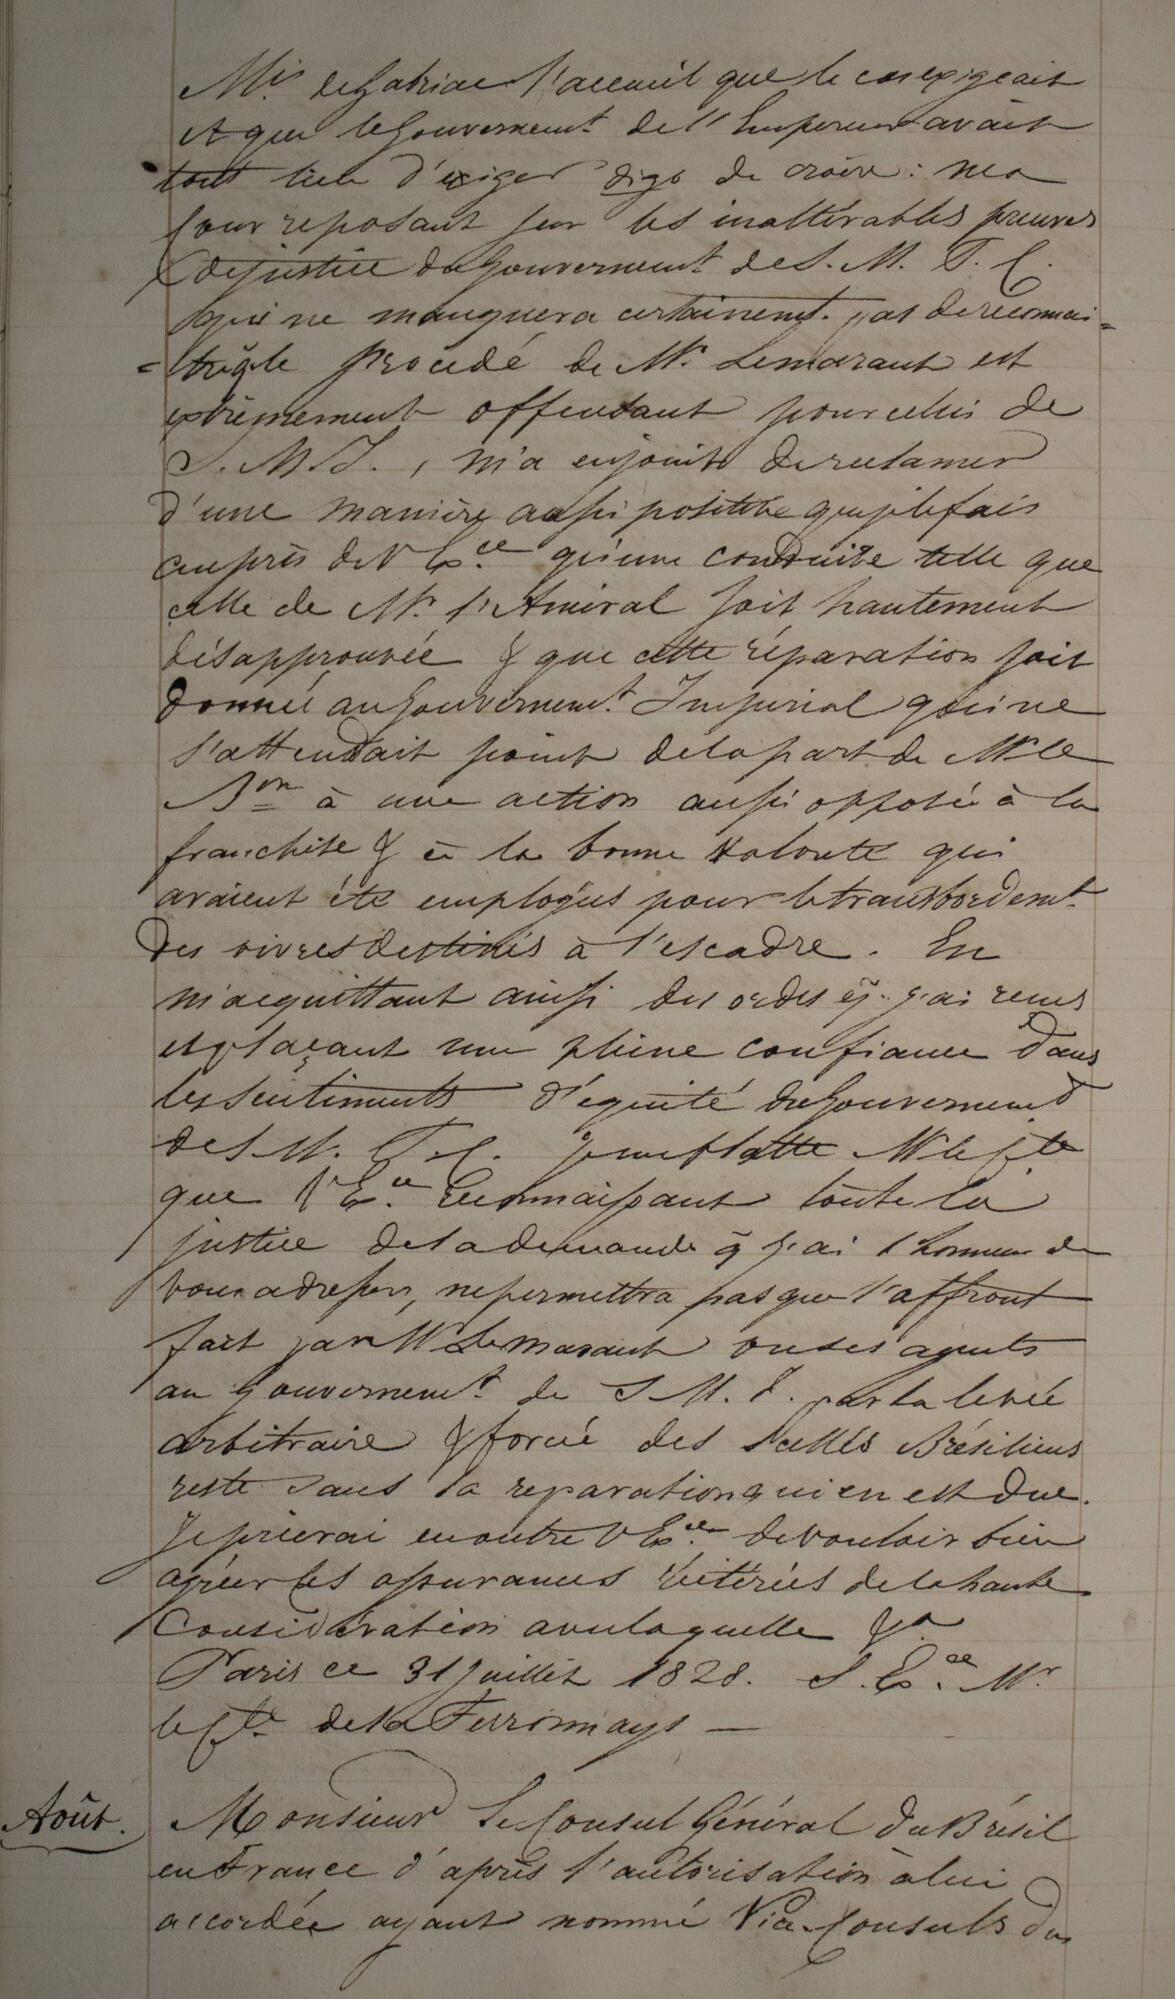 Mis. de Gabriac l'accueil que le cas exigeait
et que le Gouvernemt. de l'Empereur avait
tout lieu d'exiger digo de croire: ma
Cour reposant sur les inaltérables preuves
de justice du Gouvernemt. de S. M. T. C.
qui ne manquera certainemt. pas de reconnai=
=tre q̃ le procédé de Mr. Lemarant est
extrêmement offendant pour celui de
S. M. I., m'a enjoint de reclamer
d'une manière aussi positive que je le fais
auprès de V Exce. qu'une conduite telle que
celle de Mr. l'Amiral soit hautement
désapprouvée & que cette réparation soit
donnée au Gouvernemt. Imperial qui ne
s'attendait point de la part de Mr le
Bon à une action aussi opposée à la
franchise & à la bonne volonté qui
avaient été employés pour le transbordemt.
des vivres destinés à l'escadre. En
m'acquittant ainsi des ordes q̃. j'ai reçus
et plaçant une pleine confiance dans
les sentiments d'équité du Gouvernement
de S M. T. C. je me flatte Mr le Cte
que V Ece. reconnaissant toute la
justice de la demande q̃ j'ai l'honneur de
vous adresser, ne permettra pas que l'affront
fait par Mr Lemarant ou ses agents
au Gouvernemt. de S M. I. par la levée
arbitraire & forcée des scellés Brésiliens
reste sans la reparation qui en est due.
Je prierai en outre V Exce. de vouloir bien
agréer les assurances réitérées de la haute
Considération avec laquelle &a
Paris ce 31 Juillet 1828. S. Exce. Mr.
le Cte. de la Ferronnays —
Août.
Monsieur Le Consul Général du Brésil
en France d'après l'autorisation à lui
accordée ayant nommé Vice-Consuls du